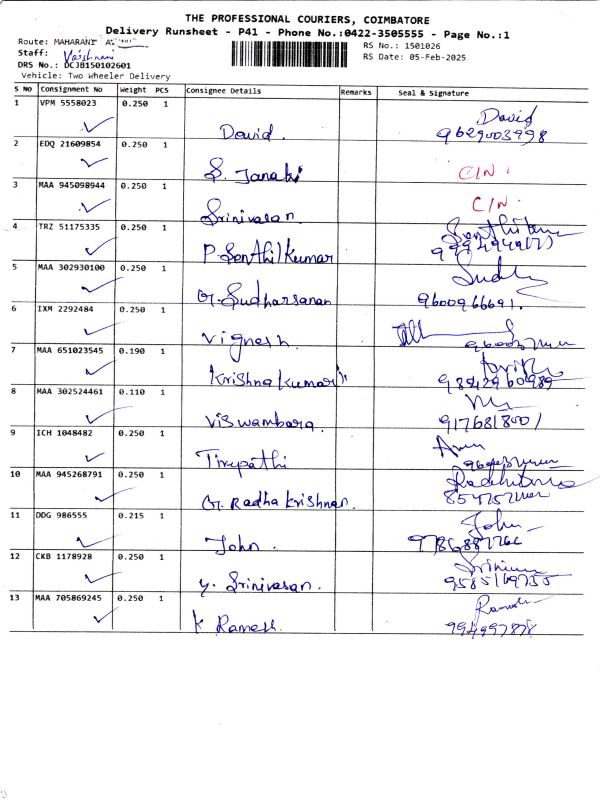 THE PROFESSIONAL COURIERS, COIMBATORE
Delivery Runsheet - P41 - Phone No.:0422-3505555 - Page No.:1
Route: MAHARANI
RS No.: 1501026
Staff: Vaishnavi
RS Date: 05-Feb-2025
DRS No.: DCJB150102601
Vehicle: Two Wheeler Delivery
S No Consignment No Weight PCS Consignee Details Remarks Seal & Signature
1 VPM 5558023 0.250 1
David. David
9629003998
2 EDQ 21609854 0.250 1
S. Janaki C/N.
3 MAA 945098944 0.250 1
Srinivasan C/N.
4 TRZ 51175335 0.250 1
P Senthilkumar
5 MAA 302930100 0.250 1
G. Sudharsanan 9600966691.
6 IXM 2292484 0.250 1
Vignesh.
7 MAA 651023545 0.190 1
Krishna kumar 9842960989
8 MAA 302524461 0.110 1
Viswambara. 917681800/
9 ICH 1048482 0.250 1
Tirupathi
10 MAA 945268791 0.250 1
G. Radha Krishnan.
11 DDG 986555 0.215 1
John. John
12 CKB 1178928 0.250 1
y. Srinivasan. 9585169755
13 MAA 705869245 0.250 1
K Ramesh. 994997878